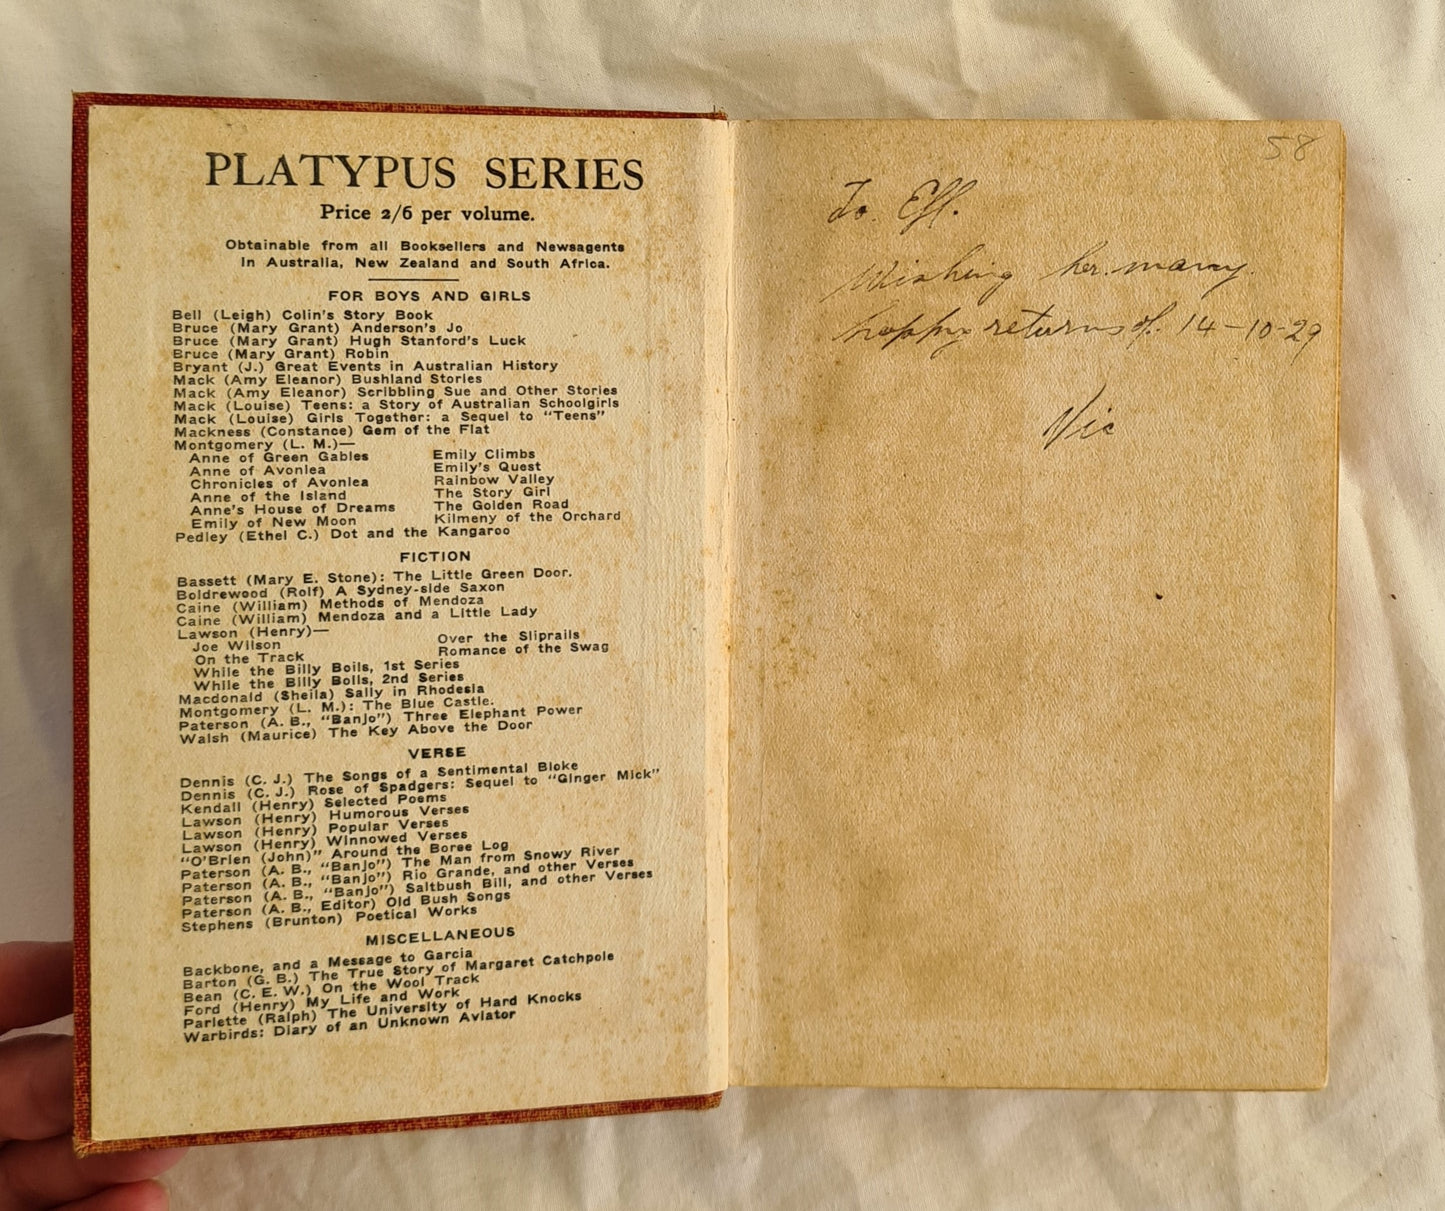 PLATYPUS SERIES
Price 2/6 per volume.
Obtainable from all Booksellers and Newsagents
in Australia, New Zealand and South Africa.
FOR BOYS AND GIRLS
Bell (Leigh) Colin's Story Book
Bruce (Mary Grant) Anderson's Jo
Bruce (Mary Grant) Hugh Stanford's Luck
Bruce (Mary Grant) Robin
Bryant (J.) Great Events in Australian History
Mack (Amy Eleanor) Bushland Stories
Mack (Amy Eleanor) Scribbling Sue and Other Stories
Mack (Louise) Teens: a Story of Australian Schoolgirls
Mack (Louise) Girls Together: a Sequel to "Teens"
Mackness (Constance) Gem of the Flat
Montgomery (L. M.)—
Anne of Green Gables
Anne of Avonlea
Chronicles of Avonlea
Anne of the Island
Anne's House of Dreams
Emily of New Moon
Emily Climbs
Emily's Quest
Rainbow Valley
The Story Girl
The Golden Road
Kilmeny of the Orchard
Pedley (Ethel C.) Dot and the Kangaroo
FICTION
Bassett (Mary E. Stone): The Little Green Door.
Boldrewood (Rolf) A Sydney-side Saxon
Caine (William) Methods of Mendoza
Caine (William) Mendoza and a Little Lady
Lawson (Henry)—
Joe Wilson
On the Track
Over the Sliprails
Romance of the Swag
While the Billy Boils, 1st Series
While the Billy Boils, 2nd Series
Macdonald (Sheila) Sally in Rhodesia
Montgomery (L. M.): The Blue Castle.
Paterson (A. B., "Banjo") Three Elephant Power
Walsh (Maurice) The Key Above the Door
VERSE
Dennis (C. J.) The Songs of a Sentimental Bloke
Dennis (C. J.) Rose of Spadgers: Sequel to "Ginger Mick"
Kendall (Henry) Selected Poems
Lawson (Henry) Humorous Verses
Lawson (Henry) Popular Verses
Lawson (Henry) Winnowed Verses
"O'Brien (John)" Around the Boree Log
Paterson (A. B., "Banjo") The Man from Snowy River
Paterson (A. B., "Banjo") Rio Grande, and other Verses
Paterson (A. B., "Banjo") Saltbush Bill, and other Verses
Paterson (A. B., Editor) Old Bush Songs
Stephens (Brunton) Poetical Works
MISCELLANEOUS
Backbone, and a Message to Garcia
Barton (G. B.) The True Story of Margaret Catchpole
Bean (C. E. W.) On the Wool Track
Ford (Henry) My Life and Work
Parlette (Ralph) The University of Hard Knocks
Warbirds: Diary of an Unknown Aviator
58
To. Eff.
Wishing her many
happy returns of. 14-10-29
Vic